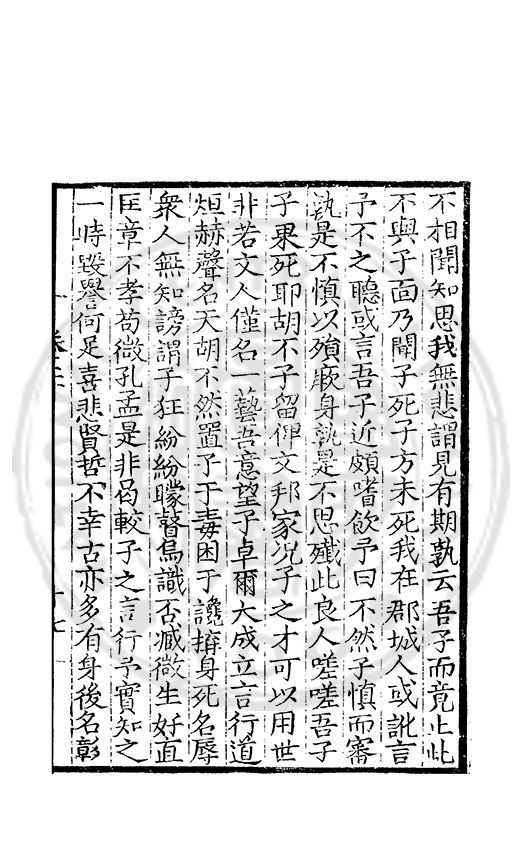 不相聞知思我無悲謂見有期孰云吾子而竟止此
不與子面乃聞子死子方未死我在郡城人或訛言
予不之聽或言吾子近頗嗜飲予曰不然子慎而審
孰是不慎以殞厥身孰是不思殲此良人嗟嗟吾子
子果死耶胡不子留俾文邦家况子之才可以用世
非若文人僅名一藝吾意望子卓爾大成立言行道
烜赫聲名天胡不然置子于毒困于讒擠身死名辱
衆人無知謗謂子狂紛紛矇瞽烏識否臧微生好直
匡章不孝苟微孔孟是非曷較子之言行予實知之
一時毀譽何足喜悲賢哲不幸古亦多有身後名彰
卷二 十七